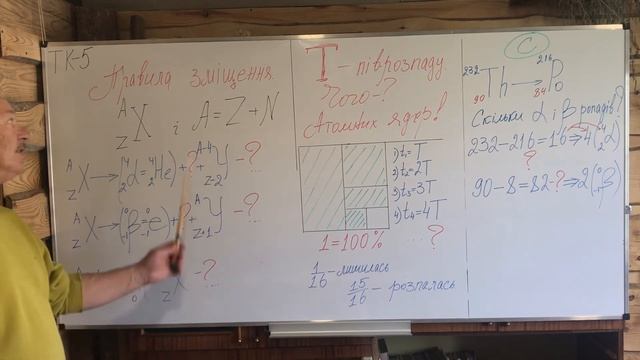 ТК-5
Правила зміщення
A
Z X і A=Z+N
A Z X → (4 2 α = 4 2 He) + ? + A-4 Z-2 Y - ?
A Z X → (0 -1 β = 0 -1 e) + ? + A Z+1 Y - ?
Z X - ?
T - піврозпаду
Чого-?
Атомних ядер!
1) t₁=T
2) t₂=2T
3) t₃=3T
4) t₄=4T
1=100% ...?
1/16 - лишилась
15/16 - розпалась
C
232 90 Th → 216 84 Po
Скільки α і β розпадів?
232-216=16 ⇒ 4(4 2 α)
?
90-8=82-? ⇒ 2(0 -1 β)